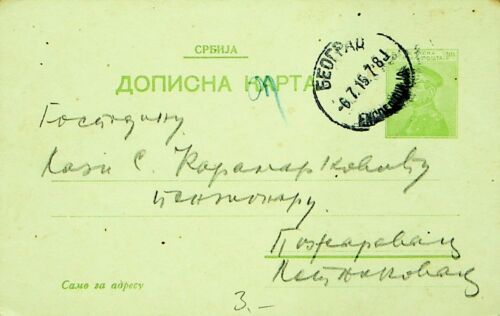 СРБИЈА
ДОПИСНА КАРТА
БЕОГРАД
-6.7.15.7-8
Господину
Лази С. Карамарковићу
пензионару.
Пожаревац
Само за адресу
3.-